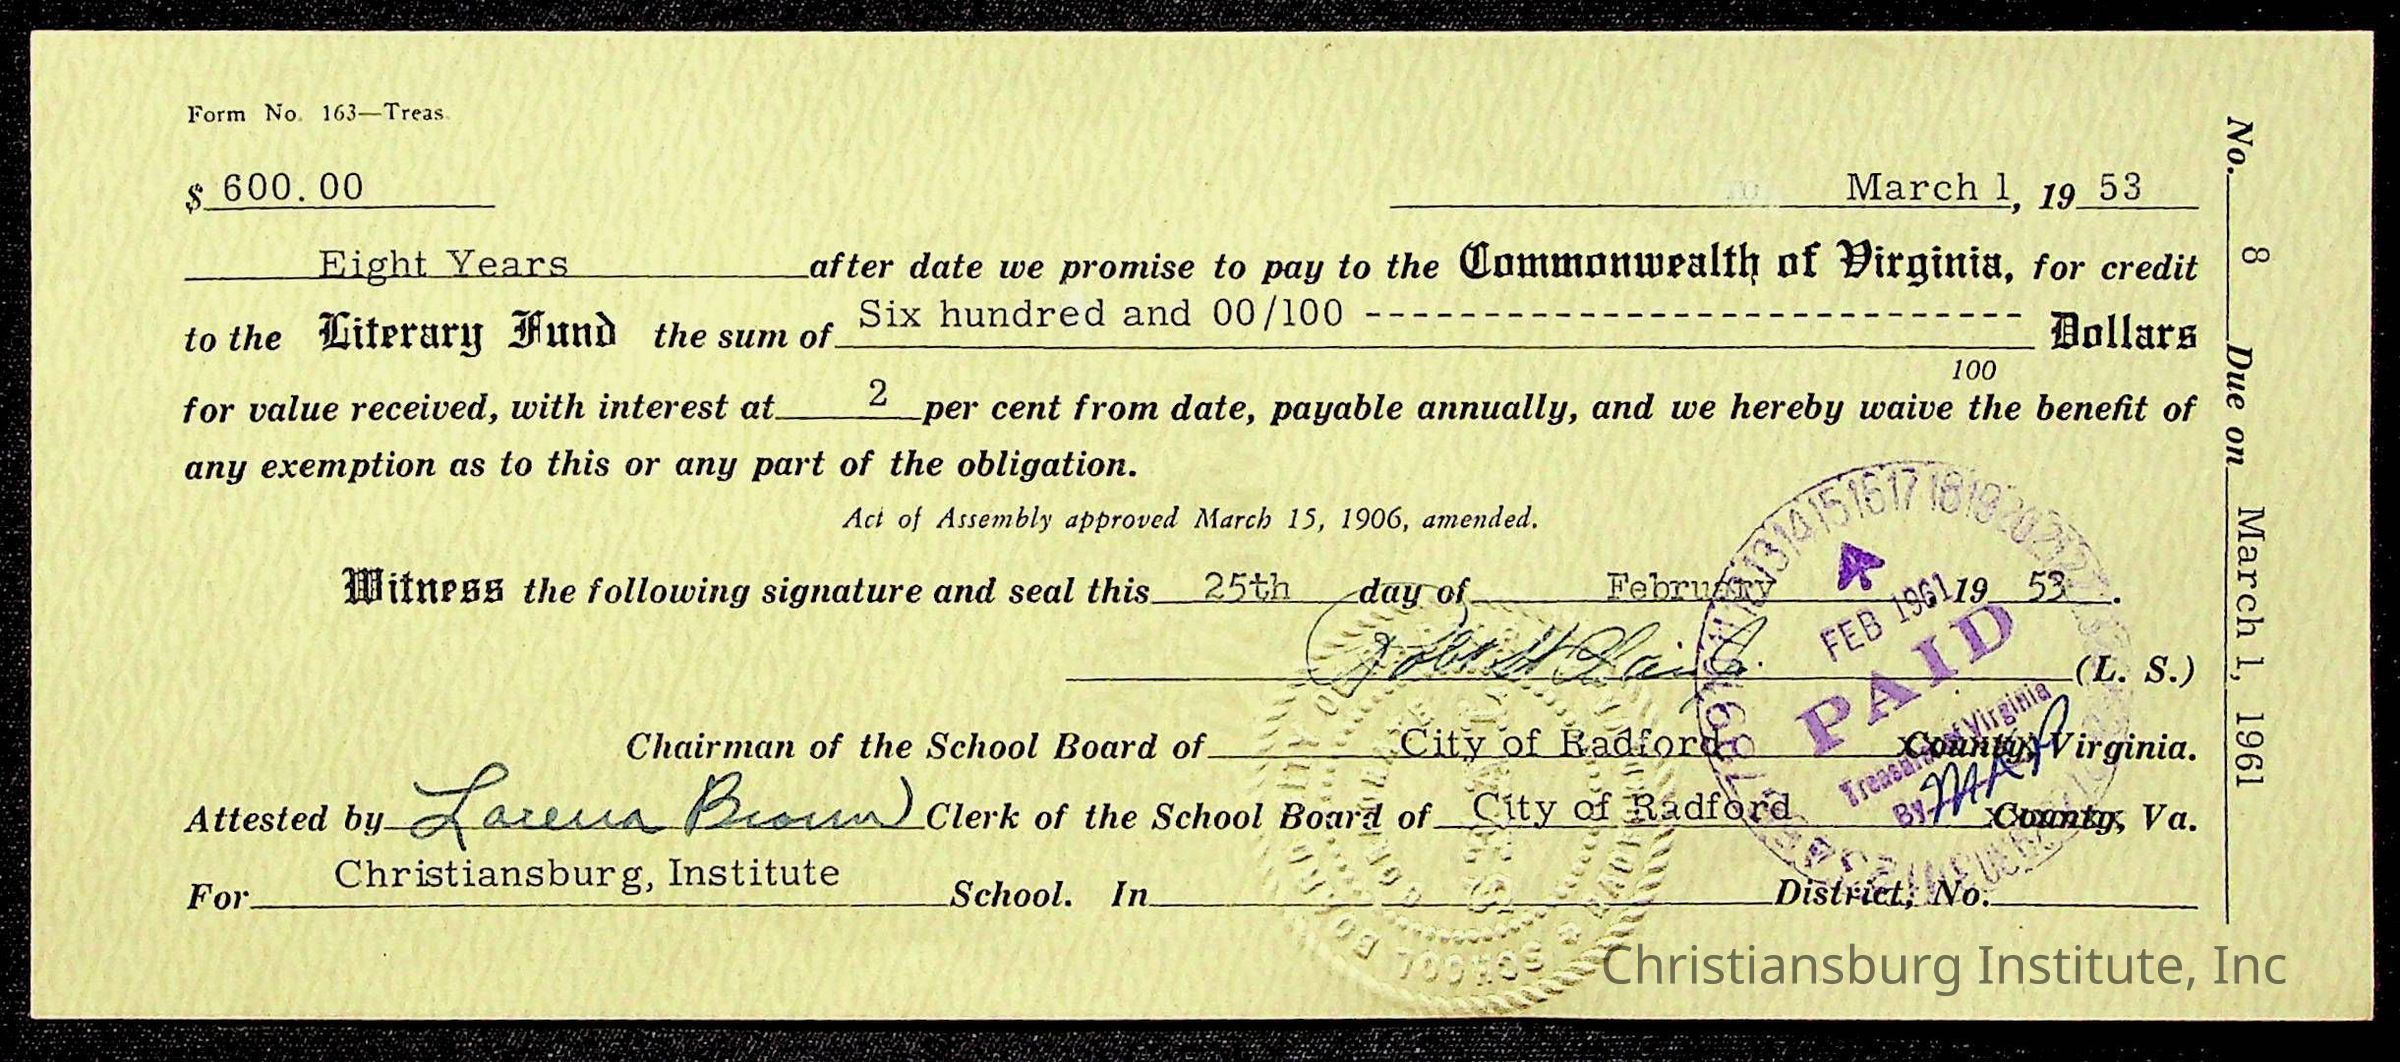 Form No. 163—Treas.
$ 600.00
March 1, 19 53
Eight Years after date we promise to pay to the Commonwealth of Virginia, for credit
to the Literary Fund the sum of Six hundred and 00/100 ---------------------------- Dollars
100
for value received, with interest at 2 per cent from date, payable annually, and we hereby waive the benefit of
any exemption as to this or any part of the obligation.
Act of Assembly approved March 15, 1906, amended.
Witness the following signature and seal this 25th day of February 19 53.
(L. S.)
Chairman of the School Board of City of Radford County, Virginia.
Attested by Lorena Brown Clerk of the School Board of City of Radford County, Va.
For Christiansburg, Institute School. In District, No.
No. 8 Due on March 1, 1961
FEB 1961
PAID
Treasurer of Virginia
By
Christiansburg Institute, Inc